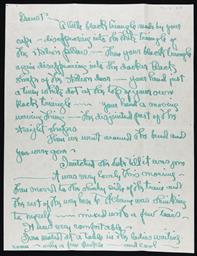 Dearest —
A little black triangle made by your
cape — disappearing into the black triangle of
the station — Then your black triangle
again disappearing into the darker black
of the station door — your hand just
a tiny white dot at the top of your own
black triangle — your hand a moving
moving thing — the disjointed part of the
straight
Then we went around the bend and
you were gone —
I watched the lake till it was gone
— it was very lovely this morning —
Then moved to the shady side of the train and
the rest of the way to Albany was thinking
to myself — mixed with a few tears
I was very comfortable —
I am seated at a table in the ladies writing
room — only a few people and cool